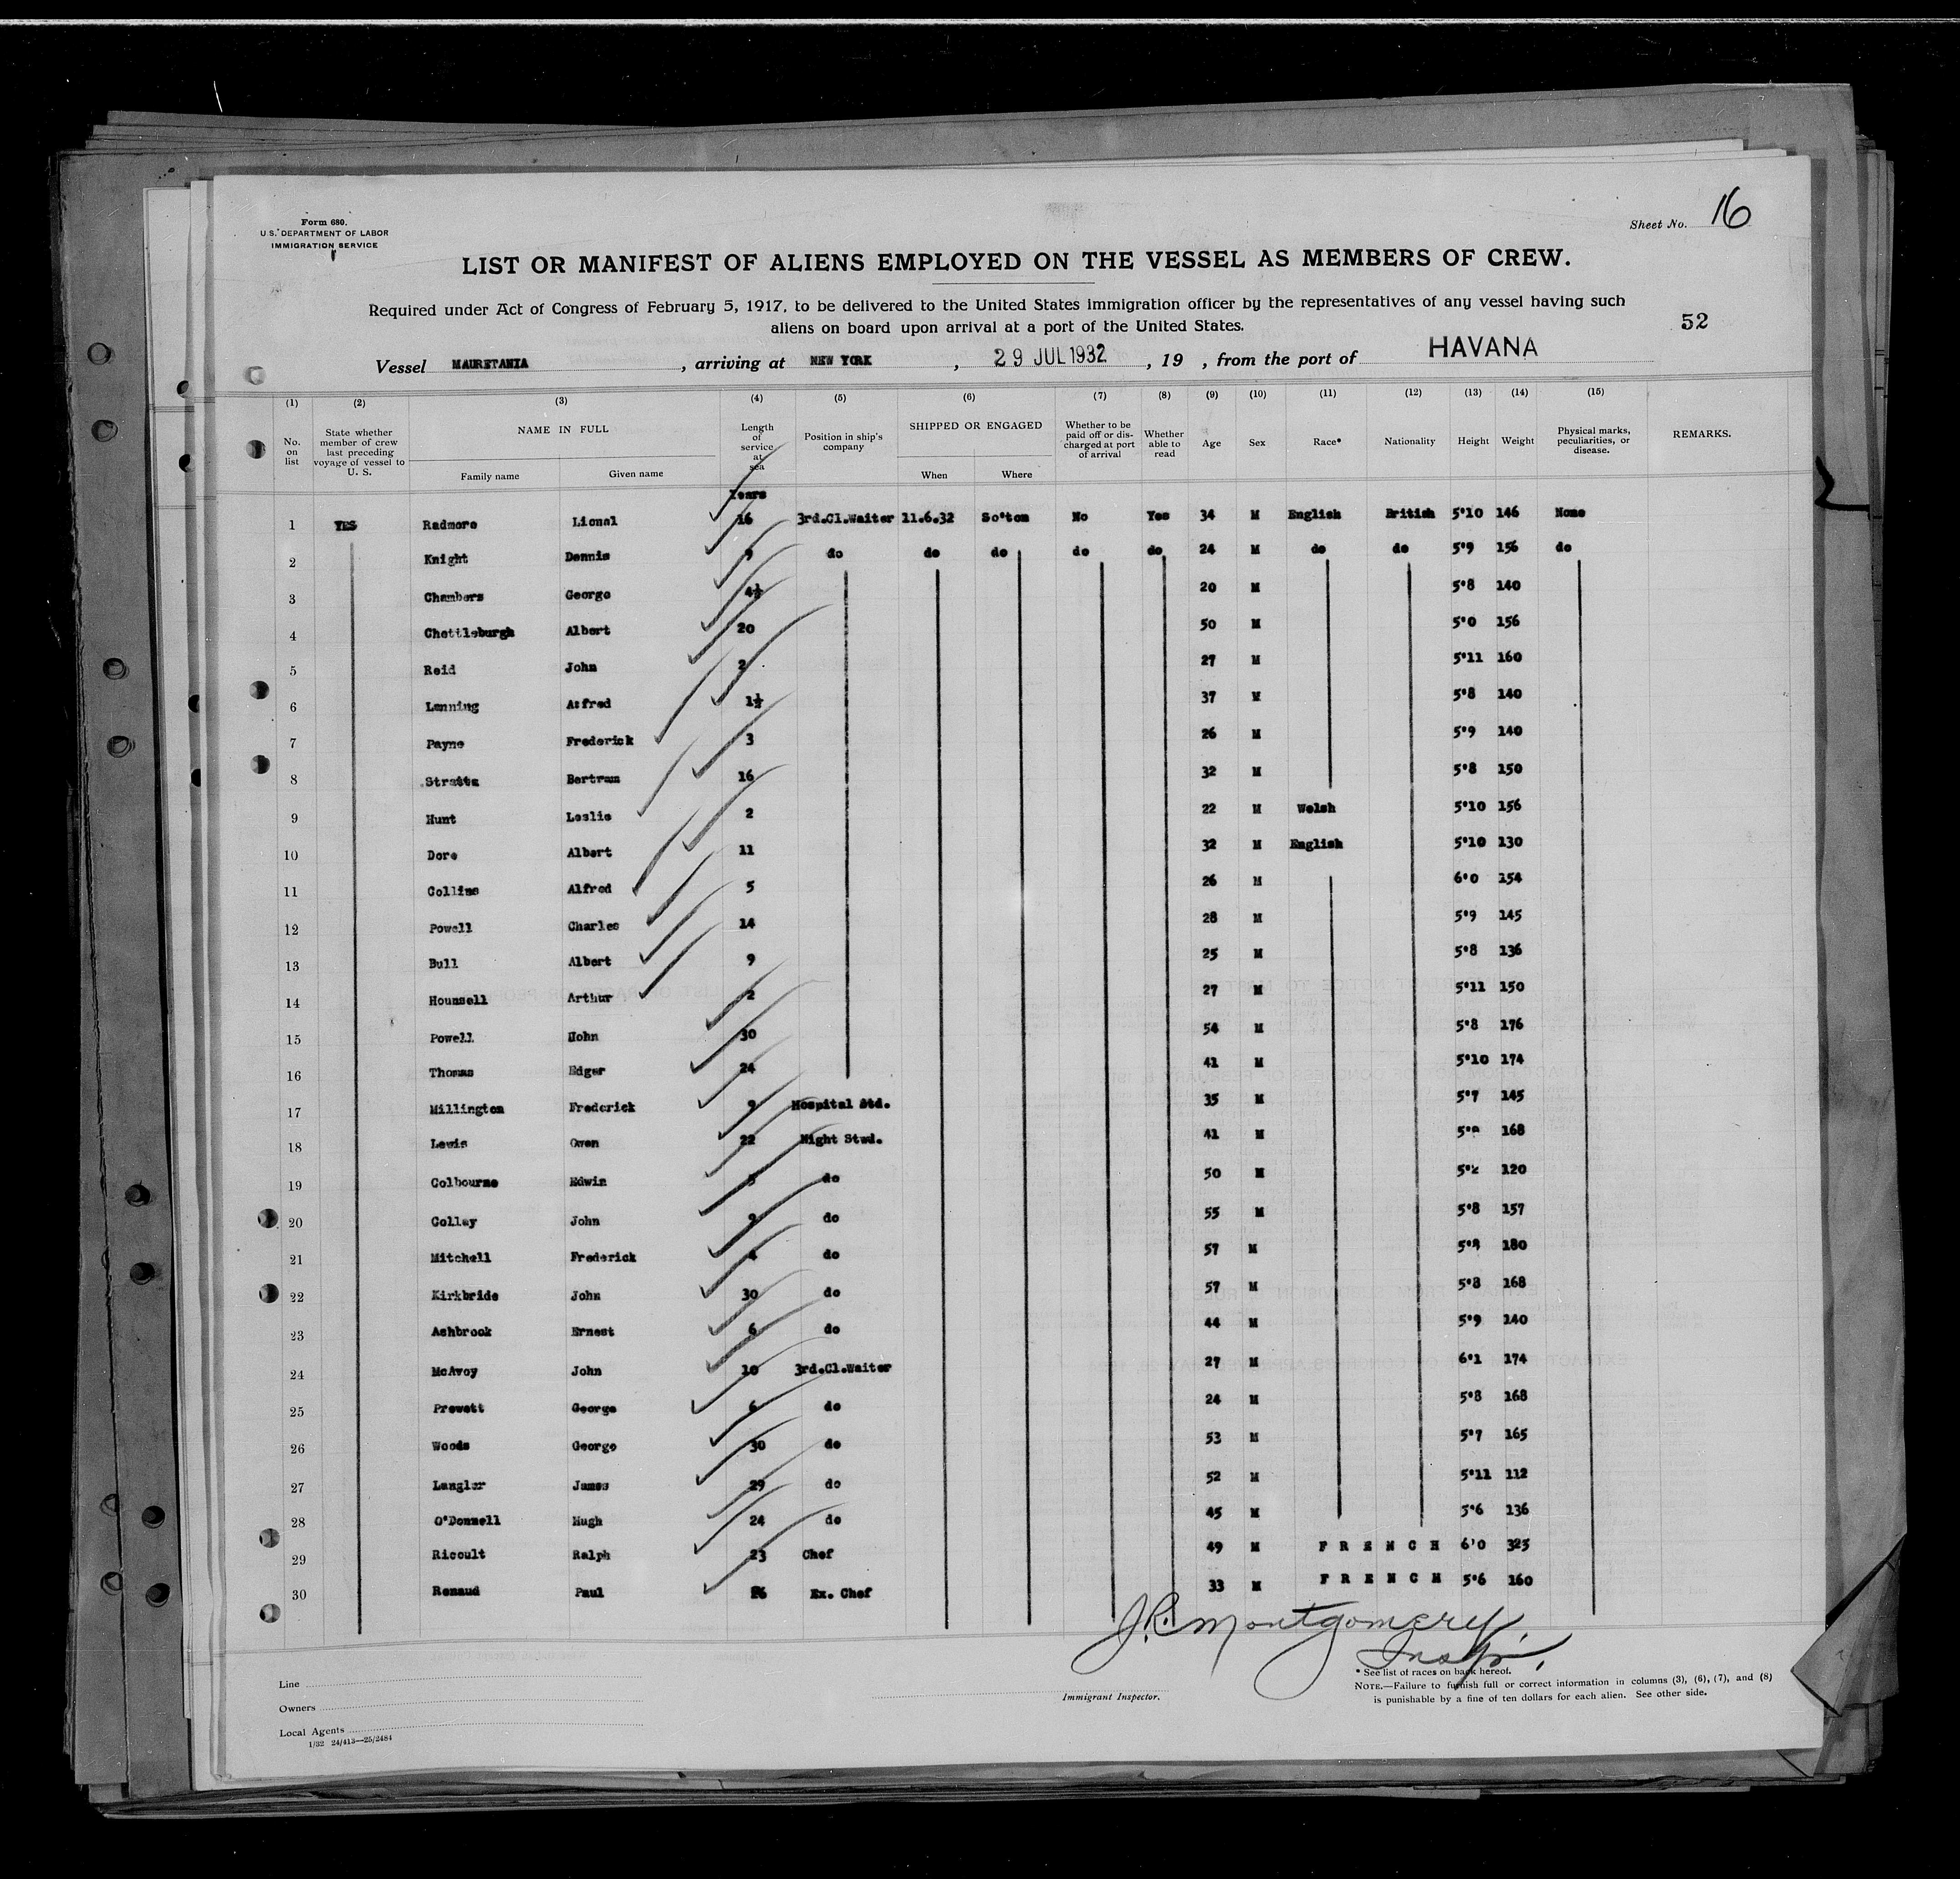 Form 680.
U.S. DEPARTMENT OF LABOR
IMMIGRATION SERVICE
Sheet No. 16
LIST OR MANIFEST OF ALIENS EMPLOYED ON THE VESSEL AS MEMBERS OF CREW.
Required under Act of Congress of February 5, 1917, to be delivered to the United States immigration officer by the representatives of any vessel having such
aliens on board upon arrival at a port of the United States.
52
Vessel MAURETANIA, arriving at NEW YORK, 29 JUL 1932, 19 , from the port of HAVANA
(1) (2) (3) (4) (5) (6) (7) (8) (9) (10) (11) (12) (13) (14) (15)
No. on list
State whether member of crew last preceding voyage of vessel to U. S.
NAME IN FULL
Family name Given name
Length of service at sea
Position in ship's company
SHIPPED OR ENGAGED
When Where
Whether to be paid off or discharged at port of arrival
Whether able to read
Age Sex Race* Nationality Height Weight
Physical marks, peculiarities, or disease.
REMARKS.
Years
1 YES Radmore Lional 16 3rd.Cl.Waiter 11.6.32 So'ton No Yes 34 M English British 5'10 146 None
2 Knight Dennis 9 do do do do do 24 M do do 5'9 156 do
3 Chambers George 4½ 20 M 5'8 140
4 Chettleburgh Albert 20 50 M 5'0 156
5 Reid John 2 27 M 5'11 160
6 Lanning Alfred 1½ 37 M 5'8 140
7 Payne Frederick 3 26 M 5'9 140
8 Stratta Bertram 16 32 M 5'8 150
9 Hunt Leslie 2 22 M Welsh 5'10 156
10 Dore Albert 11 32 M English 5'10 130
11 Collins Alfred 5 26 M 6'0 154
12 Powell Charles 14 28 M 5'9 145
13 Bull Albert 9 25 M 5'8 136
14 Hounsell Arthur 2 27 M 5'11 150
15 Powell John 30 54 M 5'8 176
16 Thomas Edgar 24 41 M 5'10 174
17 Millington Frederick 9 Hospital Std. 35 M 5'7 145
18 Lewis Owen 22 Night Stwd. 41 M 168
19 Colbourne Edwin do 50 M 5'2 120
20 Collay John 9 do 55 M 5'8 157
21 Mitchell Frederick 4 do 57 M 5'8 180
22 Kirkbride John 30 do 57 M 5'8 168
23 Ashbrook Ernest 6 do 44 M 5'9 140
24 McAvoy John 10 3rd.Cl.Waiter 27 M 6'1 174
25 Prewett George 6 do 24 M 5'8 168
26 Woods George 30 do 53 M 5'7 165
27 Langler James 29 do 52 M 5'11 112
28 O'Donnell Hugh 24 do 45 M 5'6 136
29 Ricoult Ralph 23 Chef 49 M FRENCH 6'0 323
30 Renaud Paul Ex. Chef 33 M FRENCH 5'6 160
J.R. Montgomery,
Insp.
Line
Owners
Local Agents
1/32 24/413—25/2484
Immigrant Inspector.
* See list of races on back hereof.
NOTE.—Failure to furnish full or correct information in columns (3), (6), (7), and (8)
is punishable by a fine of ten dollars for each alien. See other side.